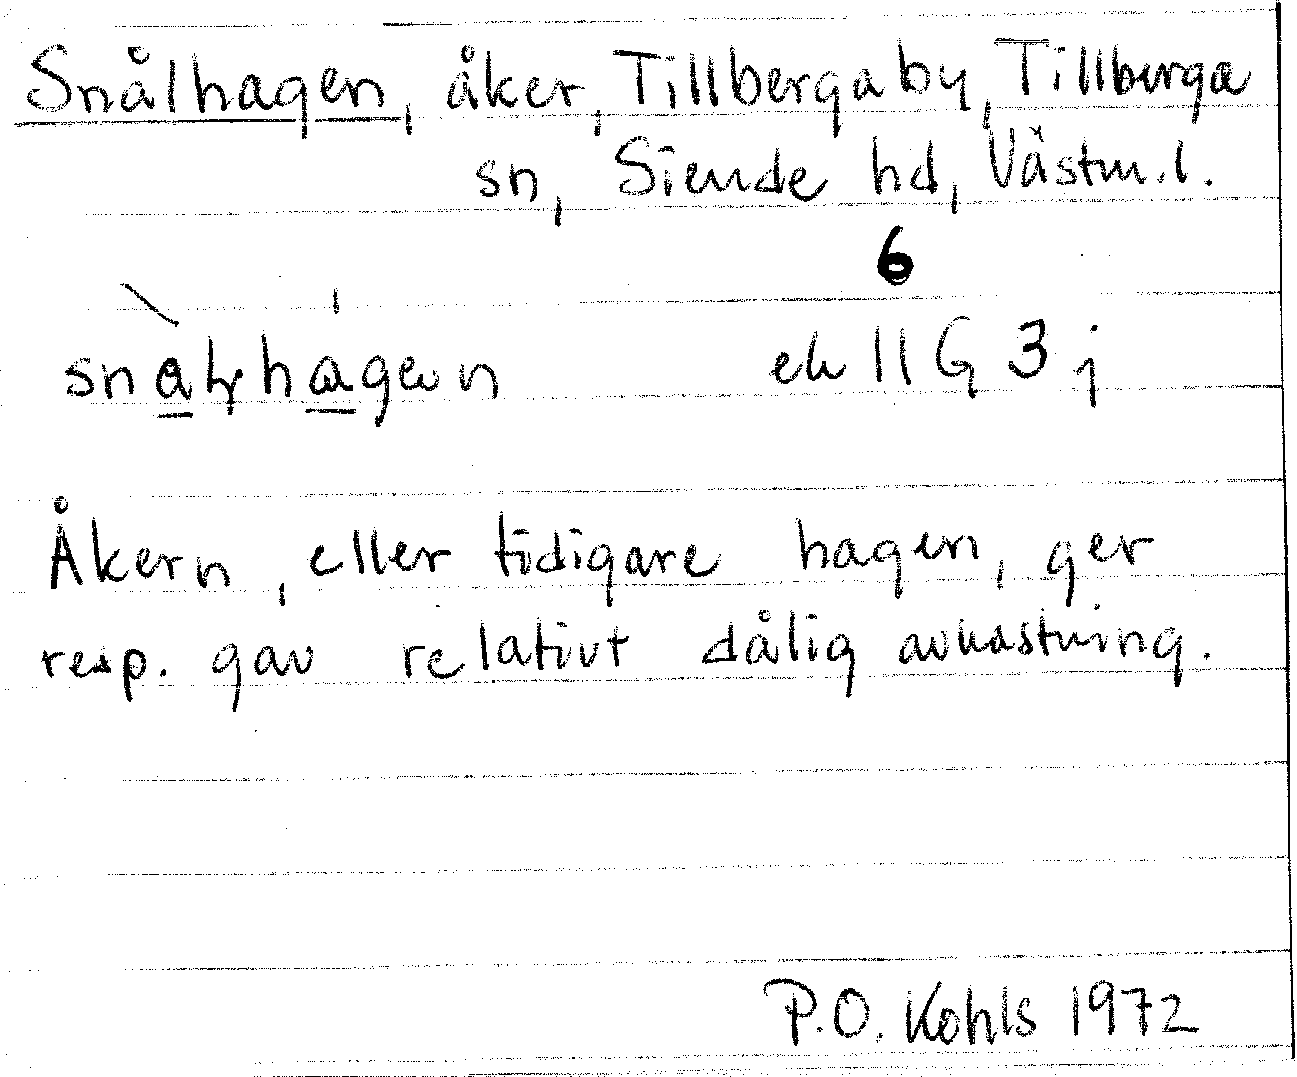 Snålhagen, åker, Tillberga by, Tillberga
sn, Siende hd, Västm.l.
6
ek 11 G 3 j
Åkern, eller tidigare hagen, ger
resp. gav relativt dålig avkastning.
P.O. Kohls 1972